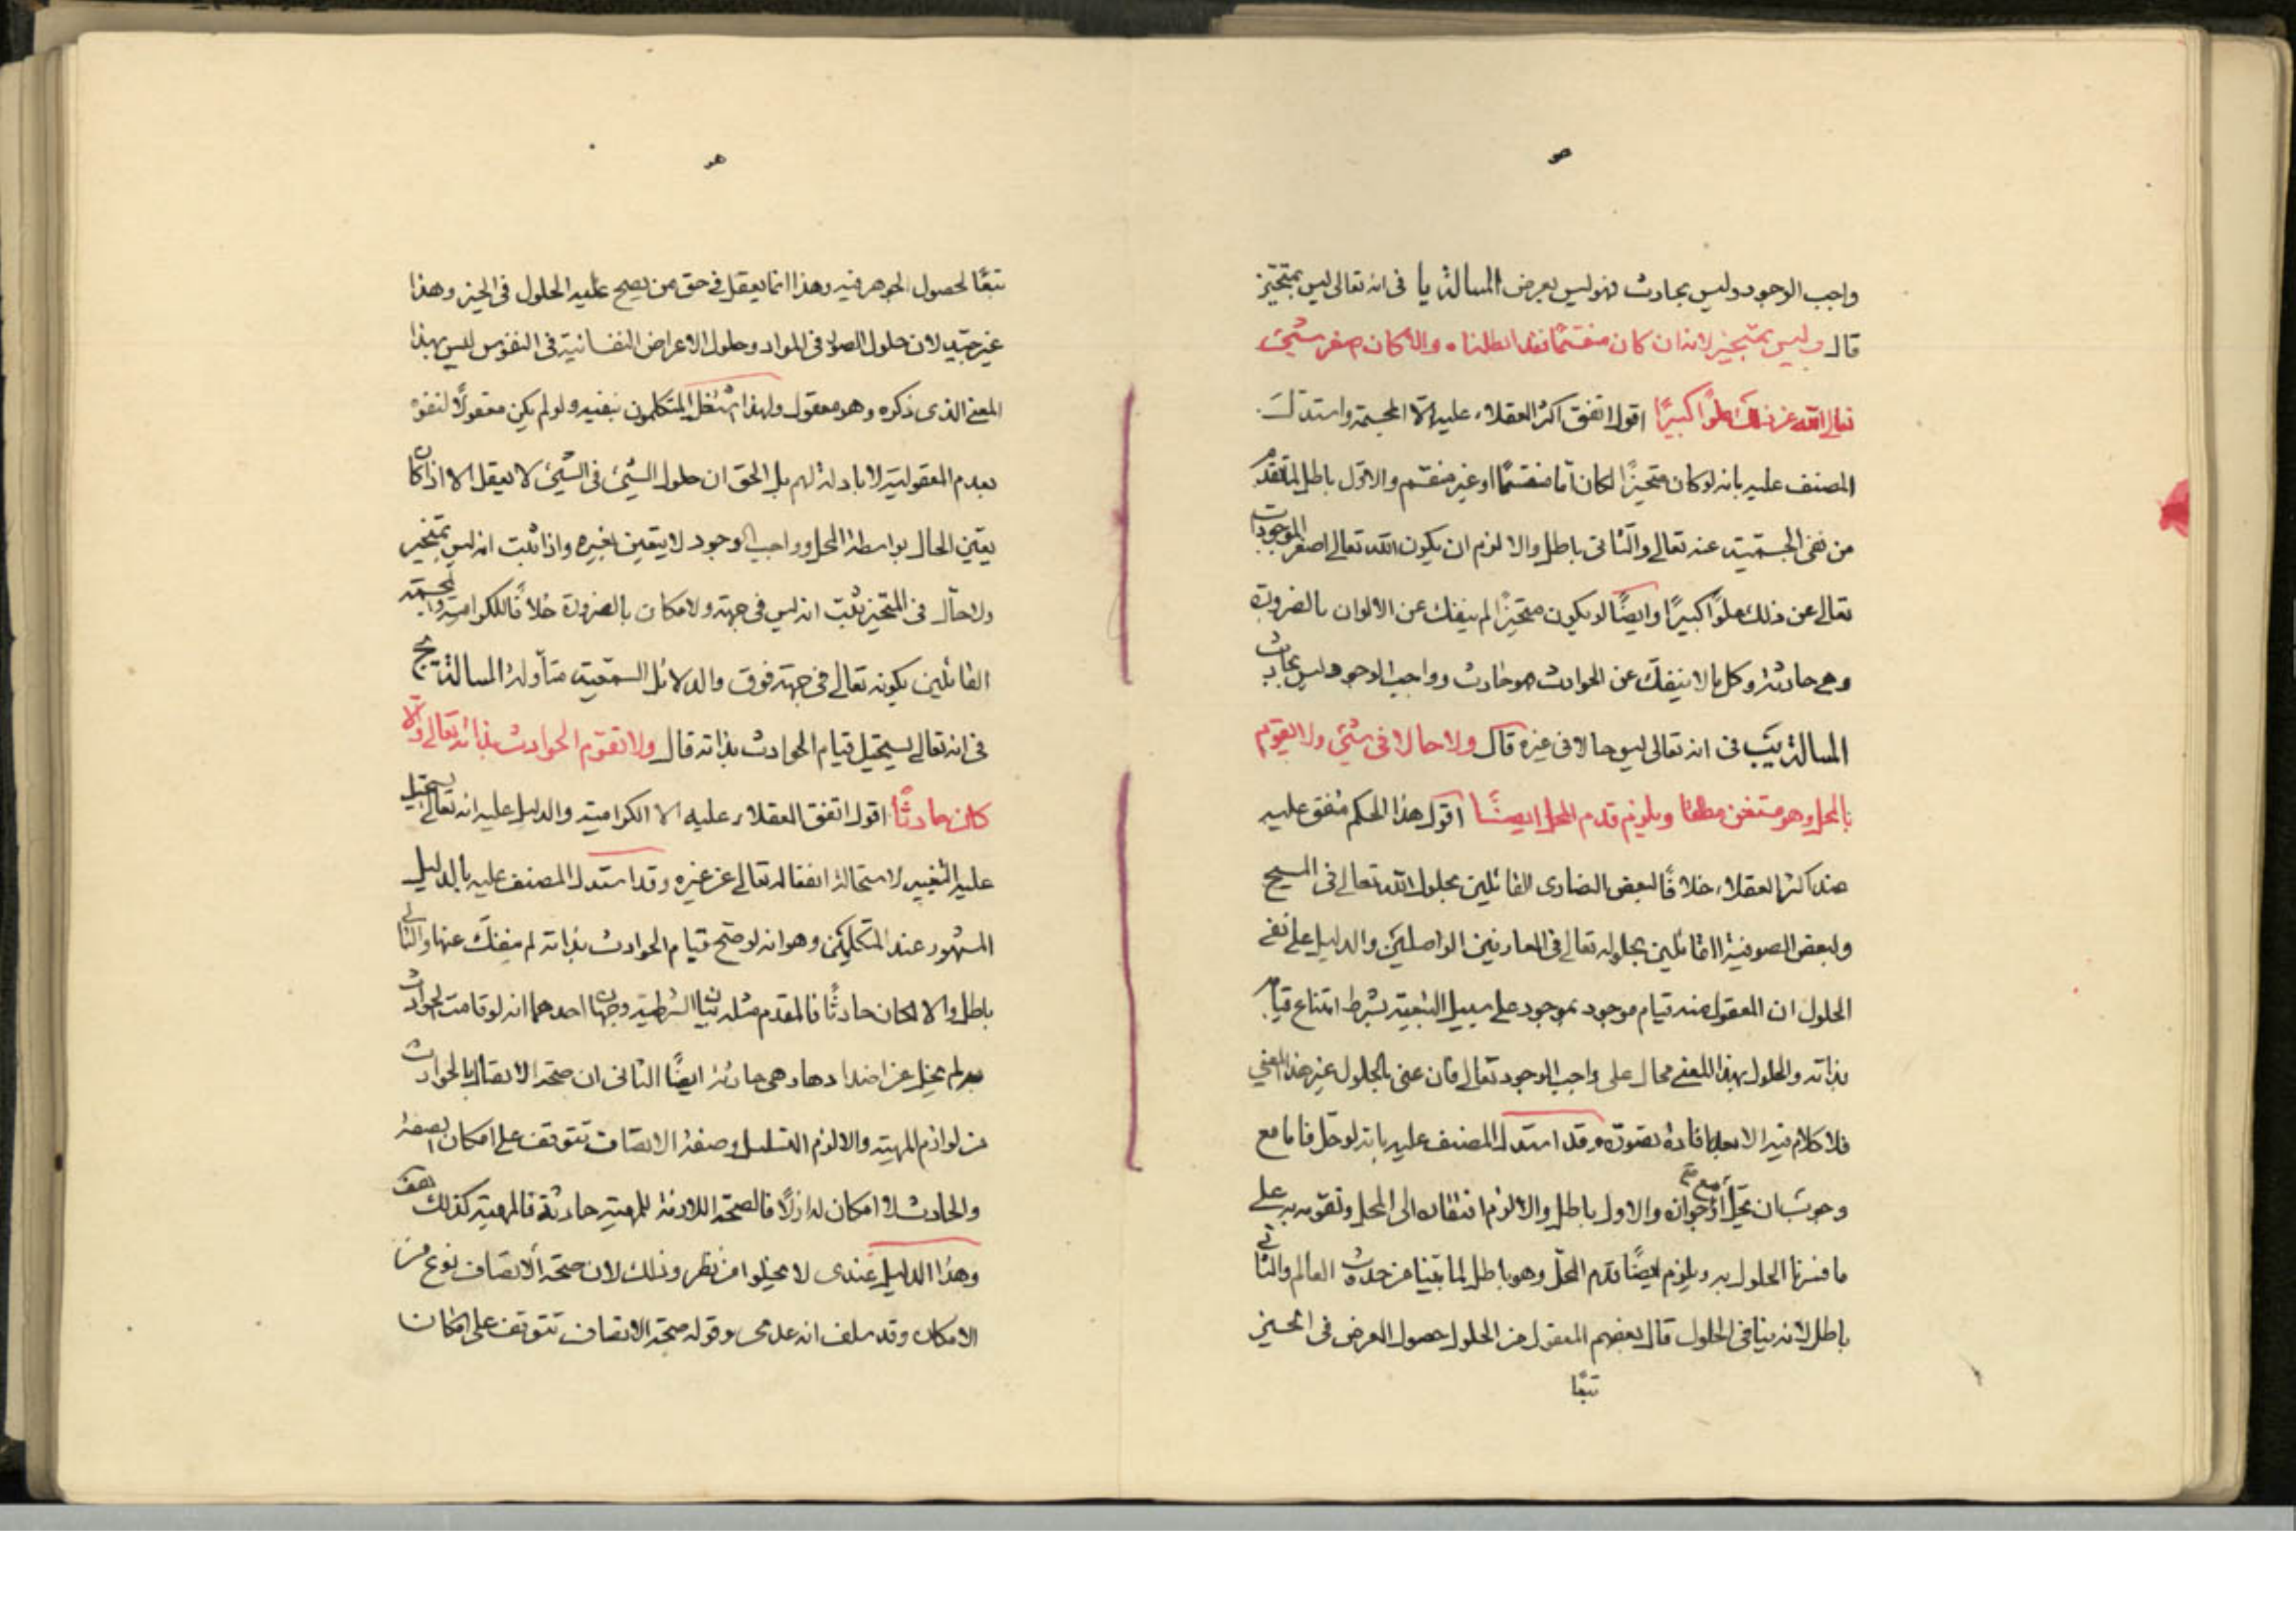 واجب الوجود وليس بحادث فهو ليس بعرض المسالة يا فى انه تعالى ليس بمتحيّز
قال وليس بمتحيز لانه ان كان منقسمًا فقد ابطلناه والا كان اصغر شيئ
تعالى الله عن ذلك علوًا كبيرًا اقول اتفق اكثر العقلاء عليه الّا المجسمة واستدل
المصنف عليه بانه لو كان متحيزًا لكان امّا منقسمًا او غير منقسم والاوّل باطل لما تقدم
من نفى الجسميّة عنه تعالى والثانى باطل والا لزم ان يكون الله تعالى اصغر الموجودات
تعالى عن ذلك علوًا كبيرًا وايضًا لو يكون متحيزًا لم ينفك عن الالوان بالضرورة
وهى حادثة وكل ما لا ينفكّ عن الحوادث هو حادث وواجب الوجود ليس بحادث
المسالة يبَ فى انه تعالى ليس حالا فى غيره قال ولا حالا فى شئ ولا لتقوم
بالمحل وهو مستغن مطلقا ويلزم قدم المحل ايضًا اقول هذا الحكم متفق عليه
عند اكثر العقلاء خلافًا لبعض النصارى القائلين بحلول الله تعالى فى المسيح
ولبعض الصوفية القائلين بحلوله تعالى فى العارفين الواصلين والدليل على نفى
الحلول ان المعقول منه قيام موجود بموجود على سبيل التبعية بشرط امتناع قيامه
بذاته والحلول بهذا المعنى محال على واجب الوجود تعالى فان عنى بالحلول غير هذا المعنى
فلا كلام فيه الا بعد افادة تصوّره وقد استدل المصنف عليه بانه لو حلّ فاما مع
وجوب ان يحلّ او مع جوازه والاول باطل والا لزم افتقاره الى المحل وتقوّمه به على
ما فسرنا الحلول به ويلزم ايضًا قدم المحلّ وهو باطل لما بيّنا من حدوث العالم والثانى
باطل لانه ينافى الحلول قال بعضهم المعقول من الحلول حصول العرض فى الحيز
تبعًا
تبعًا لحصول الجوهر فيه وهذا انما يعقل فى حق من يصح عليه الحلول فى الحيز وهذا
غير جيّد لان حلول الصور فى المواد وحلول الاعراض النفسانية فى النفوس ليس بهذا
المعنى الذى ذكره وهو معقول ولهذا اشتغل المتكلمون بنفيه ولو لم يكن معقولًا لنفوه
بعدم المعقولية لا بادلة لهم بل الحق ان حلول الشئ فى الشئ لا يعقل الا اذا كان
يعيّن الحال بواسطة المحل وواجب الوجود لا يتعين بغيره واذا ثبت انه ليس بمتحيز
ولا حالّ فى المتحيز ثبت انه ليس فى جهة ولا مكان بالضرورة خلافًا للكرامية والمجسمة
القائلين بكونه تعالى فى جهة فوق والدلائل السمعية متأولة المسالة يج
فى انه تعالى يستحيل قيام الحوادث بذاته قال ولا تقوم الحوادث بذاته تعالى والّا
كان حادثًا اقول اتفق العقلاء عليه الا الكرامية والدليل عليه انه تعالى يستحيل
عليه التغيير لاستحالة انفعاله تعالى عن غيره وقد استدل المصنف عليه بالدليل
المشهور عند المتكلمين وهو انه لو صح قيام الحوادث بذاته لم ينفكّ عنها والثانى
باطل والا لكان حادثًا فالمقدم مثله بيان الشرطية وجهان احدهما انه لو قامت الحوادث
به لم يخل عن اضدادها وهى حادثة ايضًا الثانى ان صحة الاتصاف بالحوادث
من لوازم المهية والا لزم التسلسل وصفة الاتصاف تتوقف على امكان الصفة
والحادث لا امكان له ازلًا فالصحة اللازمة للمهية حادثة فالمهية كذلك هف
وهذا الدليل عندى لا يخلو من نظر وذلك لان صحة الاتصاف نوع من
الامكان وقد سلف انه عدمى وقوله صحة الاتصاف تتوقف على امكان